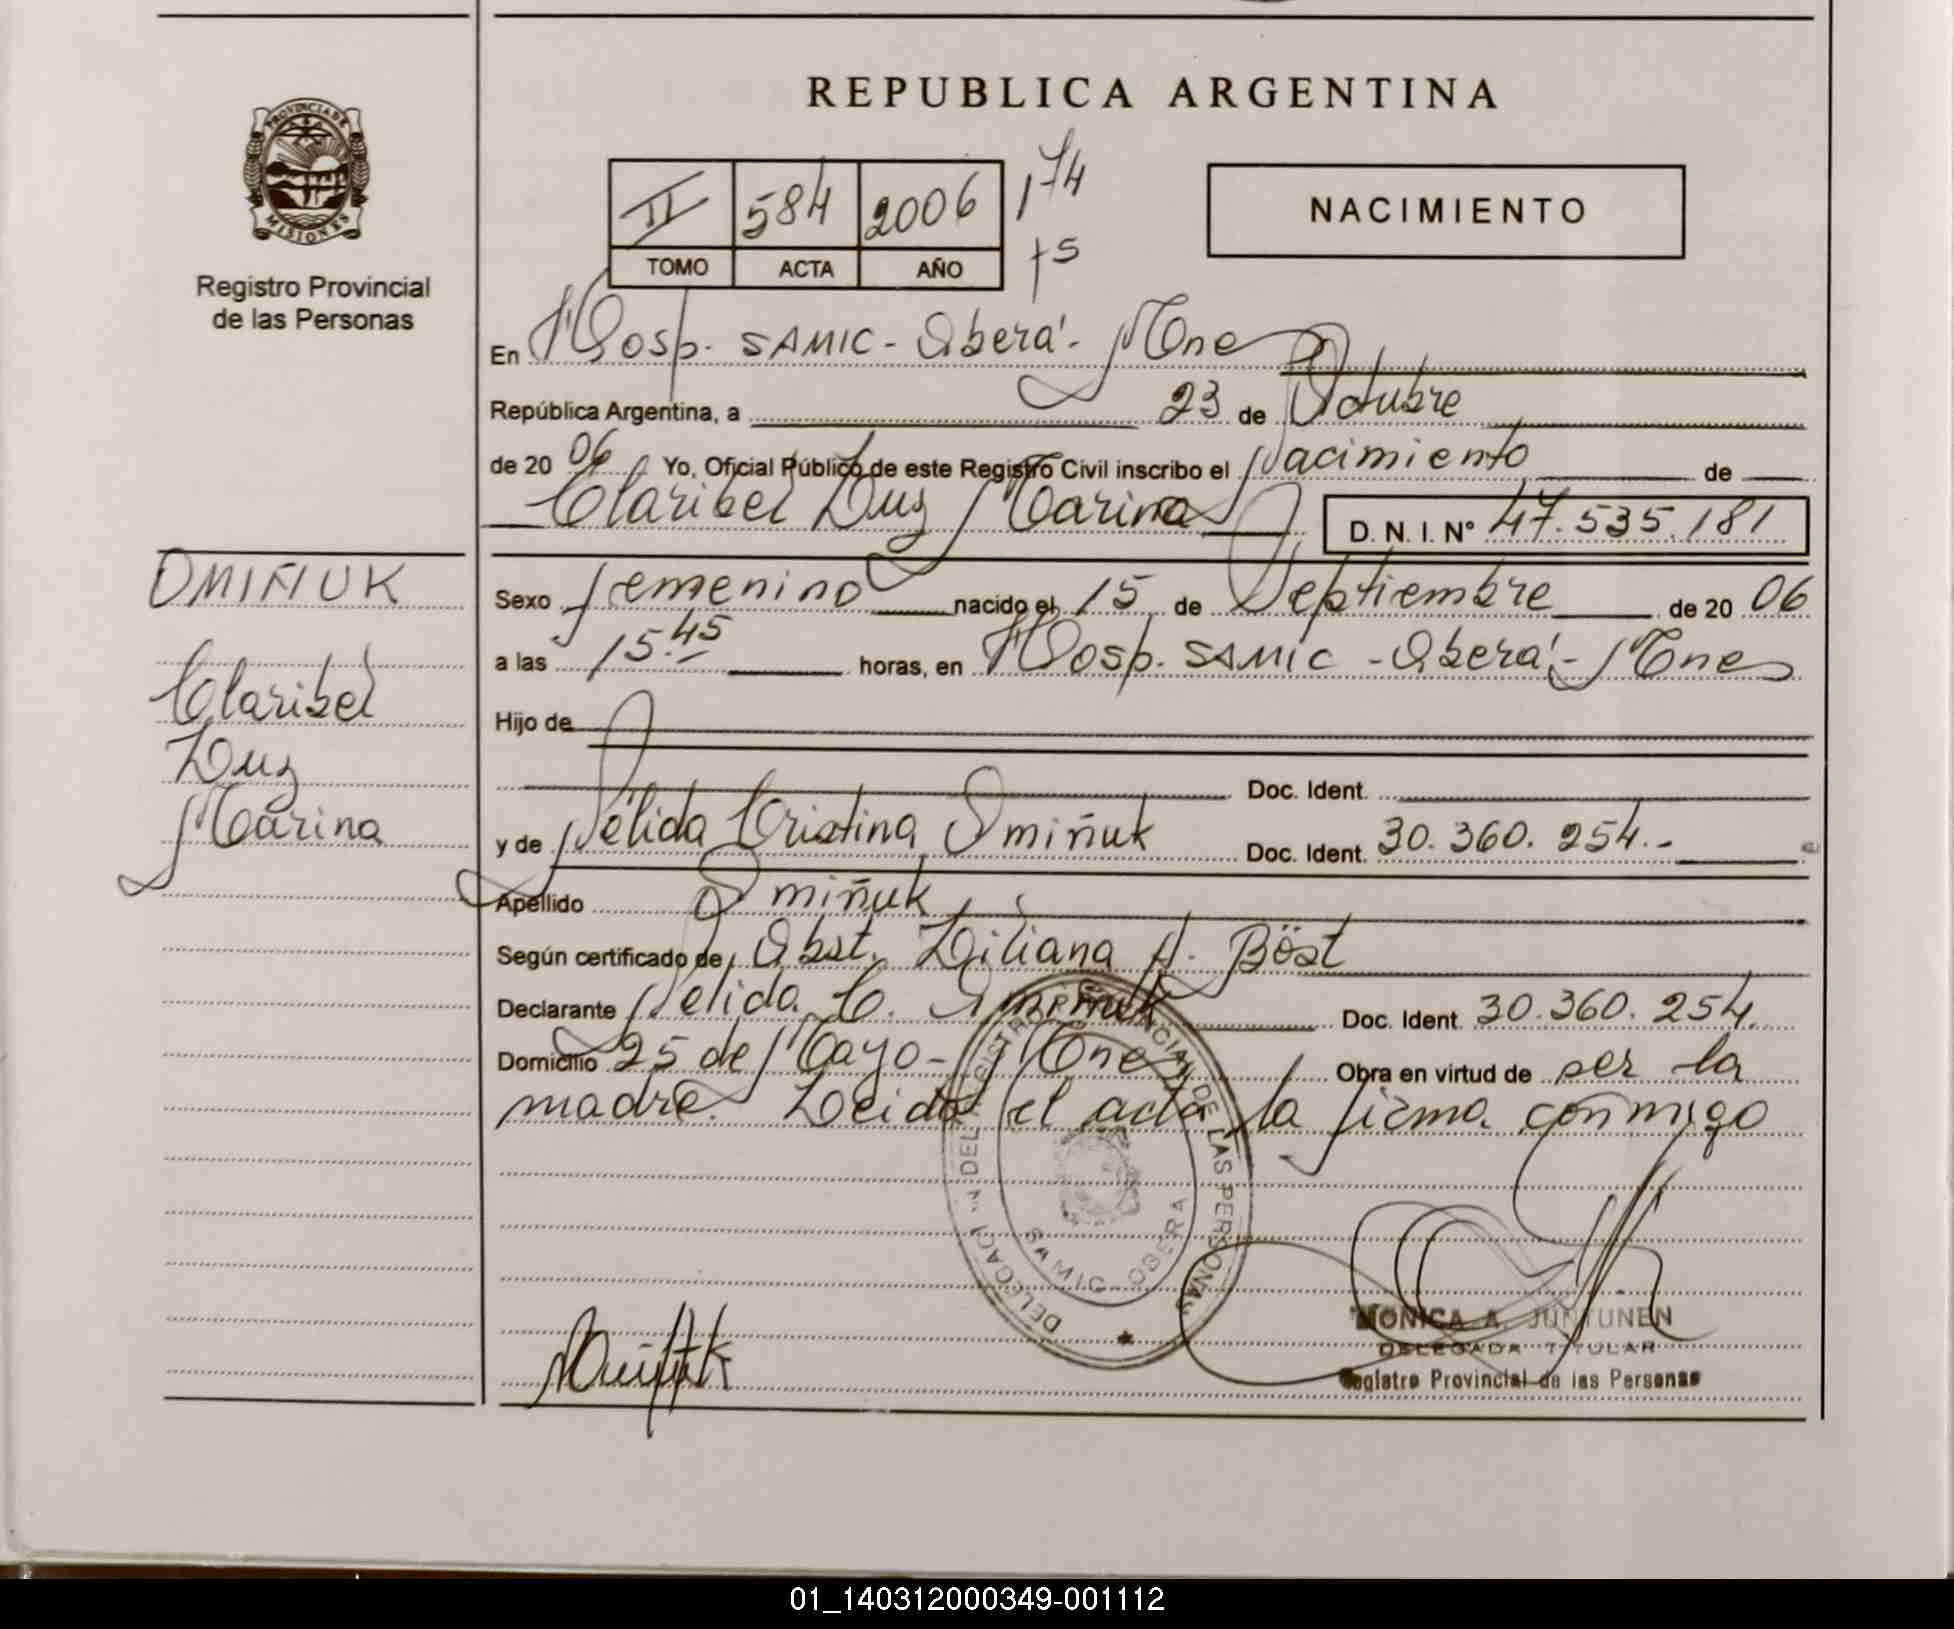 REPUBLICA ARGENTINA
PROVINCIA DE MISIONES
Registro Provincial
de las Personas
II 584 2006 174
TOMO ACTA AÑO 75
NACIMIENTO
En Hosp. SAMIC - Oberá - Mnes
República Argentina, a 23 de Octubre
de 2006 Yo, Oficial Público de este Registro Civil inscribo el Nacimiento de
Claribel Luz Marina D. N. I. N° 47.535.181
OMIÑUK
Claribel
Luz
Marina
Sexo femenino nacido el 15 de Septiembre de 2006
a las 15.45 horas, en Hosp. SAMIC - Oberá - Mnes
Hijo de
Doc. Ident.
y de Nélida Cristina Omiñuk Doc. Ident. 30.360.254.-
Apellido Omiñuk
Según certificado de Obst. Liliana A. Böst
Declarante Nélida C. Omiñuk Doc. Ident. 30.360.254.
Domicilio 25 de Mayo - Mnes Obra en virtud de ser la
madre. Leida el acta la firma conmigo
DELEGACI DEL REGISTRO PROVINCIAL DE LAS PERSONAS
SAMIC - OBERA
MONICA A. JUNTUNEN
DELEGADA TITULAR
Registro Provincial de las Personas
01_140312000349-001112